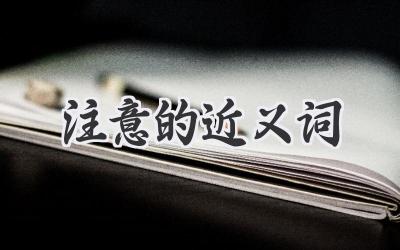 注意的近义词